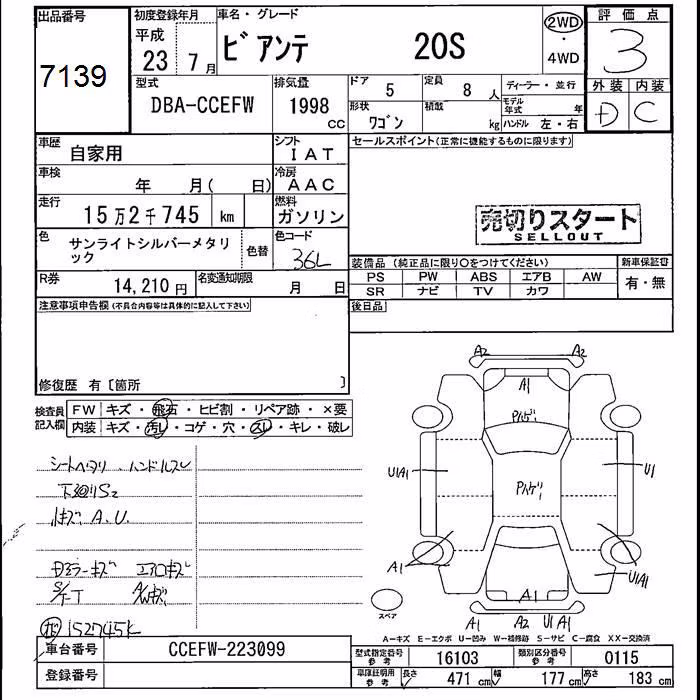 出品番号
7139
初度登録年月
平成
23 年 7 月
車名・グレード
ビアンテ 20S
2WD
・
4WD
評価点
3
外装 内装
D C
型式
DBA-CCEFW
排気量
1998
CC
ドア
5
定員
8 人
ディーラー・並行
形状
ワゴン
積載
kg
モデル年式 年
ハンドル 左・右
車歴
自家用
シフト
IAT
車検
年 月( 日)
冷房
AAC
走行
15万2千745 km
燃料
ガソリン
色
サンライトシルバーメタリ
ック
色替
色コード
36L
R券
14,210 円
名変通知期限
月 日
セールスポイント(正常に機能するものに限ります)
売切りスタート
SELLOUT
装備品(純正品に限り○をつけてください)
PS PW ABS エアB AW
SR ナビ TV カワ
新車保証書
有・無
後日品
注意事項申告欄(不具合内容等は具体的に記入して下さい)
修復歴 有〔箇所 〕
検査員
記入欄
FW キズ・飛石・ヒビ割・リペア跡・×要
内装 キズ・汚レ・コゲ・穴・スレ・キレ・破レ
シートヘタリ・ハンドルスレ
下廻りS2
キズ A.U.
ミラーキズ エアロキズ
S/T
152745K
A2 A2
A1
Pハゲ
U1A1
U1
Pハゲ
A1
U1A1
A1
A1 A2 U1A1
スペア
A-キズ E-エクボ U-凹み W-補修跡 S-サビ C-腐食 XX-交換済
車台番号
CCEFW-223099
登録番号
型式指定番号
参考
16103
類別区分番号
参考
0115
車庫証明用
参考
長さ 471 cm 幅 177 cm 高さ 183 cm